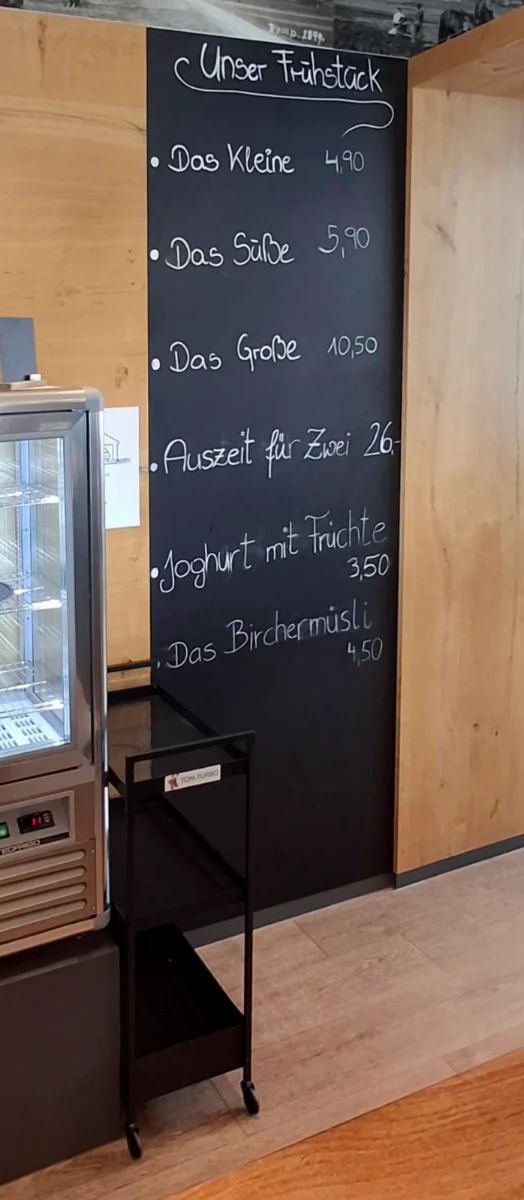 Unser Frühstück
• Das Kleine 4,90
• Das Süße 5,90
• Das Große 10,50
• Auszeit für Zwei 26,-
• Joghurt mit Früchte
3,50
• Das Birchermüsli
4,50
TOM-TURBO